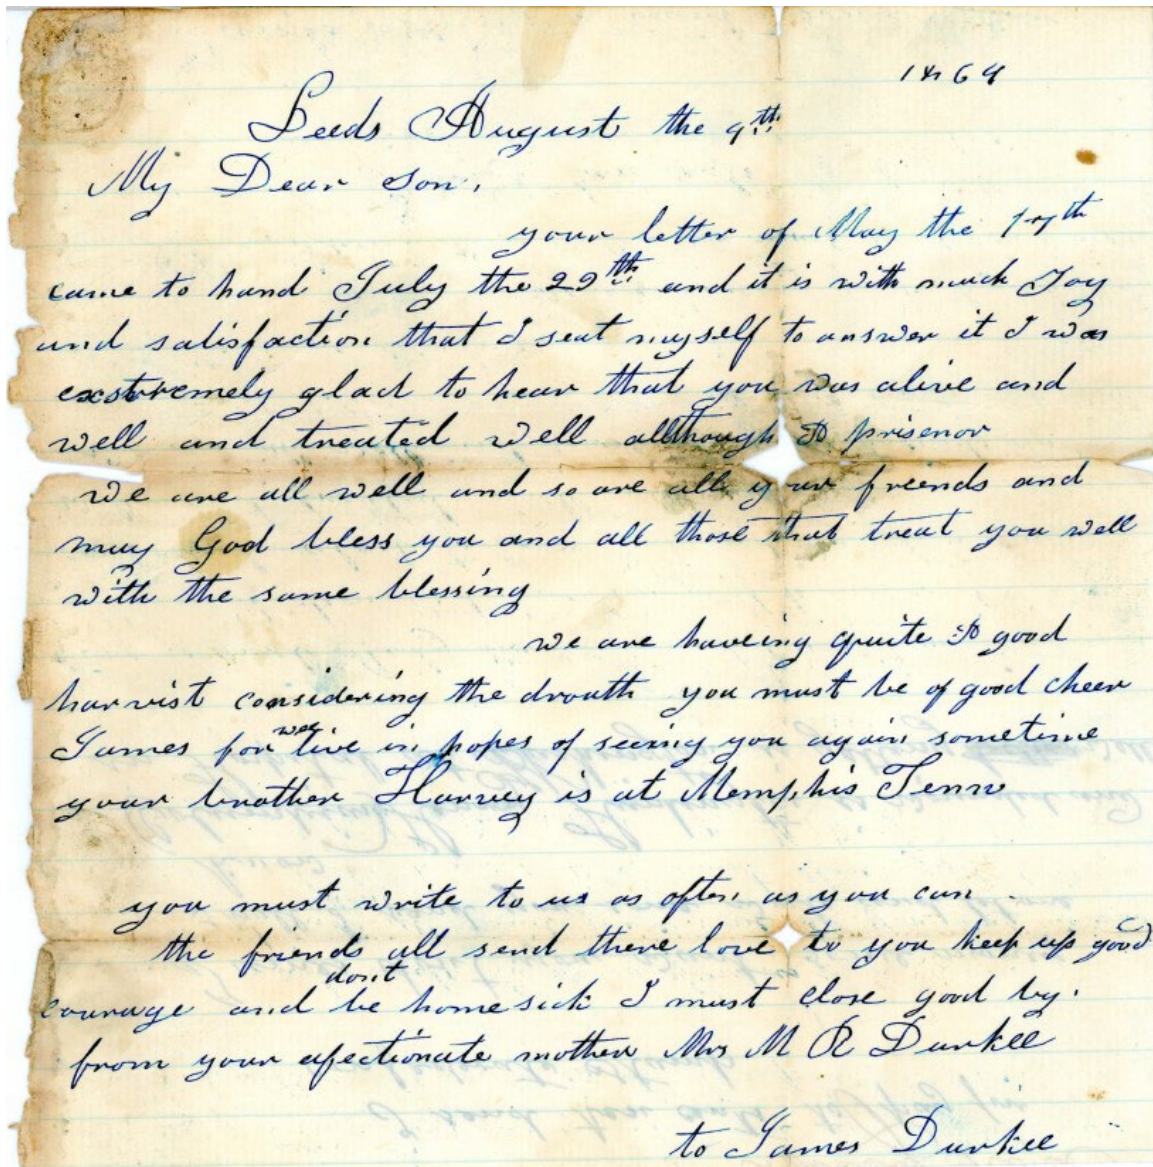 1864
Leeds August the 9th
My Dear Son,
your letter of May the 17th
came to hand July the 29th and it is with much Joy
and satisfaction that I seat myself to answer it I was
exstremely glad to hear that you was alive and
well and treated well allthough A prisenor
we are all well and so are all your freends and
may God bless you and all those that treat you well
with the same blessing
we are haveing quite A good
harvist considering the drouth you must be of good cheer
James for wee live in hopes of seeing you again sometime
your brother Harvey is at Memphis Tenn
you must write to us as often as you can
the friends all send there love to you keep up good
courage and dont be home sick I must close good by.
from your afectionate mother Mrs M R Durkee
to James Durkee